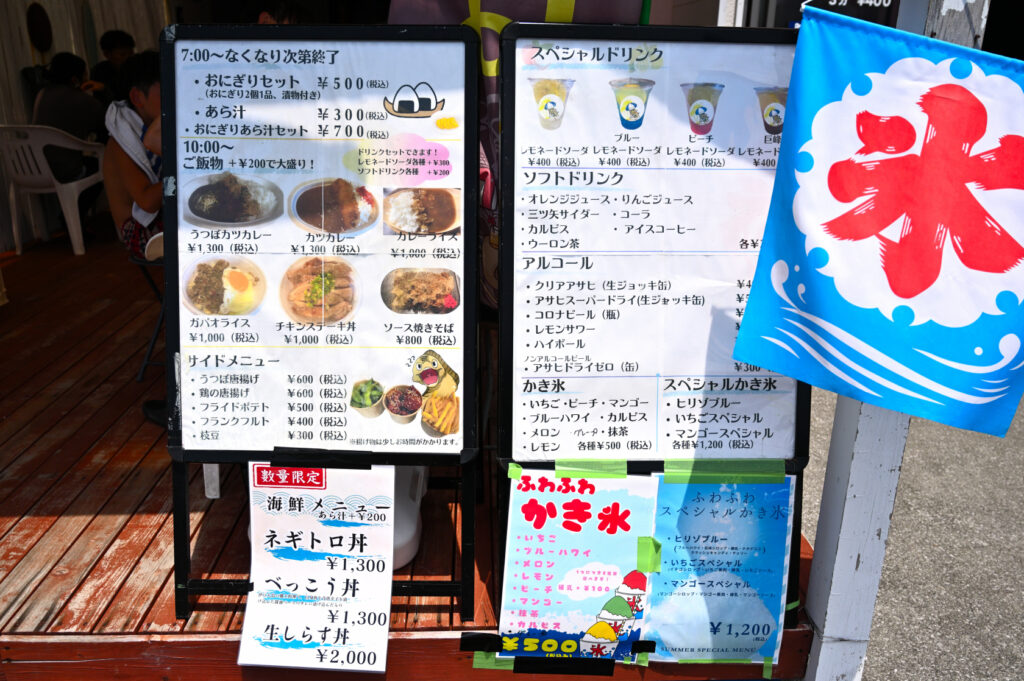 7:00～なくなり次第終了
・おにぎりセット ￥500(税込)
(おにぎり2個1品、漬物付き)
・あら汁 ￥300(税込)
・おにぎりあら汁セット ￥700(税込)
10:00～
ご飯物 +￥200で大盛り！
ドリンクセットできます！
レモネードソーダ各種 +￥300
ソフトドリンク各種 +￥200
うつぼカツカレー
￥1,300 (税込)
カツカレー
￥1,300 (税込)
カレーライス
￥1,000 (税込)
ガパオライス
￥1,000 (税込)
チキンステーキ丼
￥1,000 (税込)
ソース焼きそば
￥800 (税込)
サイドメニュー
・うつぼ唐揚げ ￥600 (税込)
・鶏の唐揚げ ￥600 (税込)
・フライドポテト ￥500 (税込)
・フランクフルト ￥400 (税込)
・枝豆 ￥300 (税込)
※揚げ物は少しお時間がかかります。
数量限定
海鮮メニュー
あら汁+￥200
ネギトロ丼
￥1,300
べっこう丼
￥1,300
生しらす丼
￥2,000
スペシャルドリンク
レモネードソーダ
￥400 (税込)
ブルー
レモネードソーダ
￥400 (税込)
ピーチ
レモネードソーダ
￥400 (税込)
巨峰
レモネード
￥40
ソフトドリンク
・オレンジジュース ・りんごジュース
・三ツ矢サイダー ・コーラ
・カルピス ・アイスコーヒー
・ウーロン茶 各￥
アルコール
・クリアアサヒ (生ジョッキ缶) ￥4
・アサヒスーパードライ(生ジョッキ缶)
・コロナビール (瓶)
・レモンサワー
・ハイボール
ノンアルコールビール
・アサヒドライゼロ (缶) ￥300
かき氷
・いちご・ピーチ・マンゴー
・ブルーハワイ ・カルピス
・メロン ・抹茶
各種￥500 (税込)
スペシャルかき氷
・ヒリゾブルー
・いちごスペシャル
・マンゴースペシャル
各種￥1,200 (税込)
ふわふわ
かき氷
・いちご
・ブルーハワイ
・メロン
・レモン
・ピーチ
・マンゴー
・抹茶
・カルピス
練乳+￥100
￥500
(税込)
氷
ふわふわ
スペシャルかき氷
・ヒリゾブルー
・いちごスペシャル
・マンゴースペシャル
￥1,200 (税込)
SUMMER SPECIAL MENU
氷
¥400